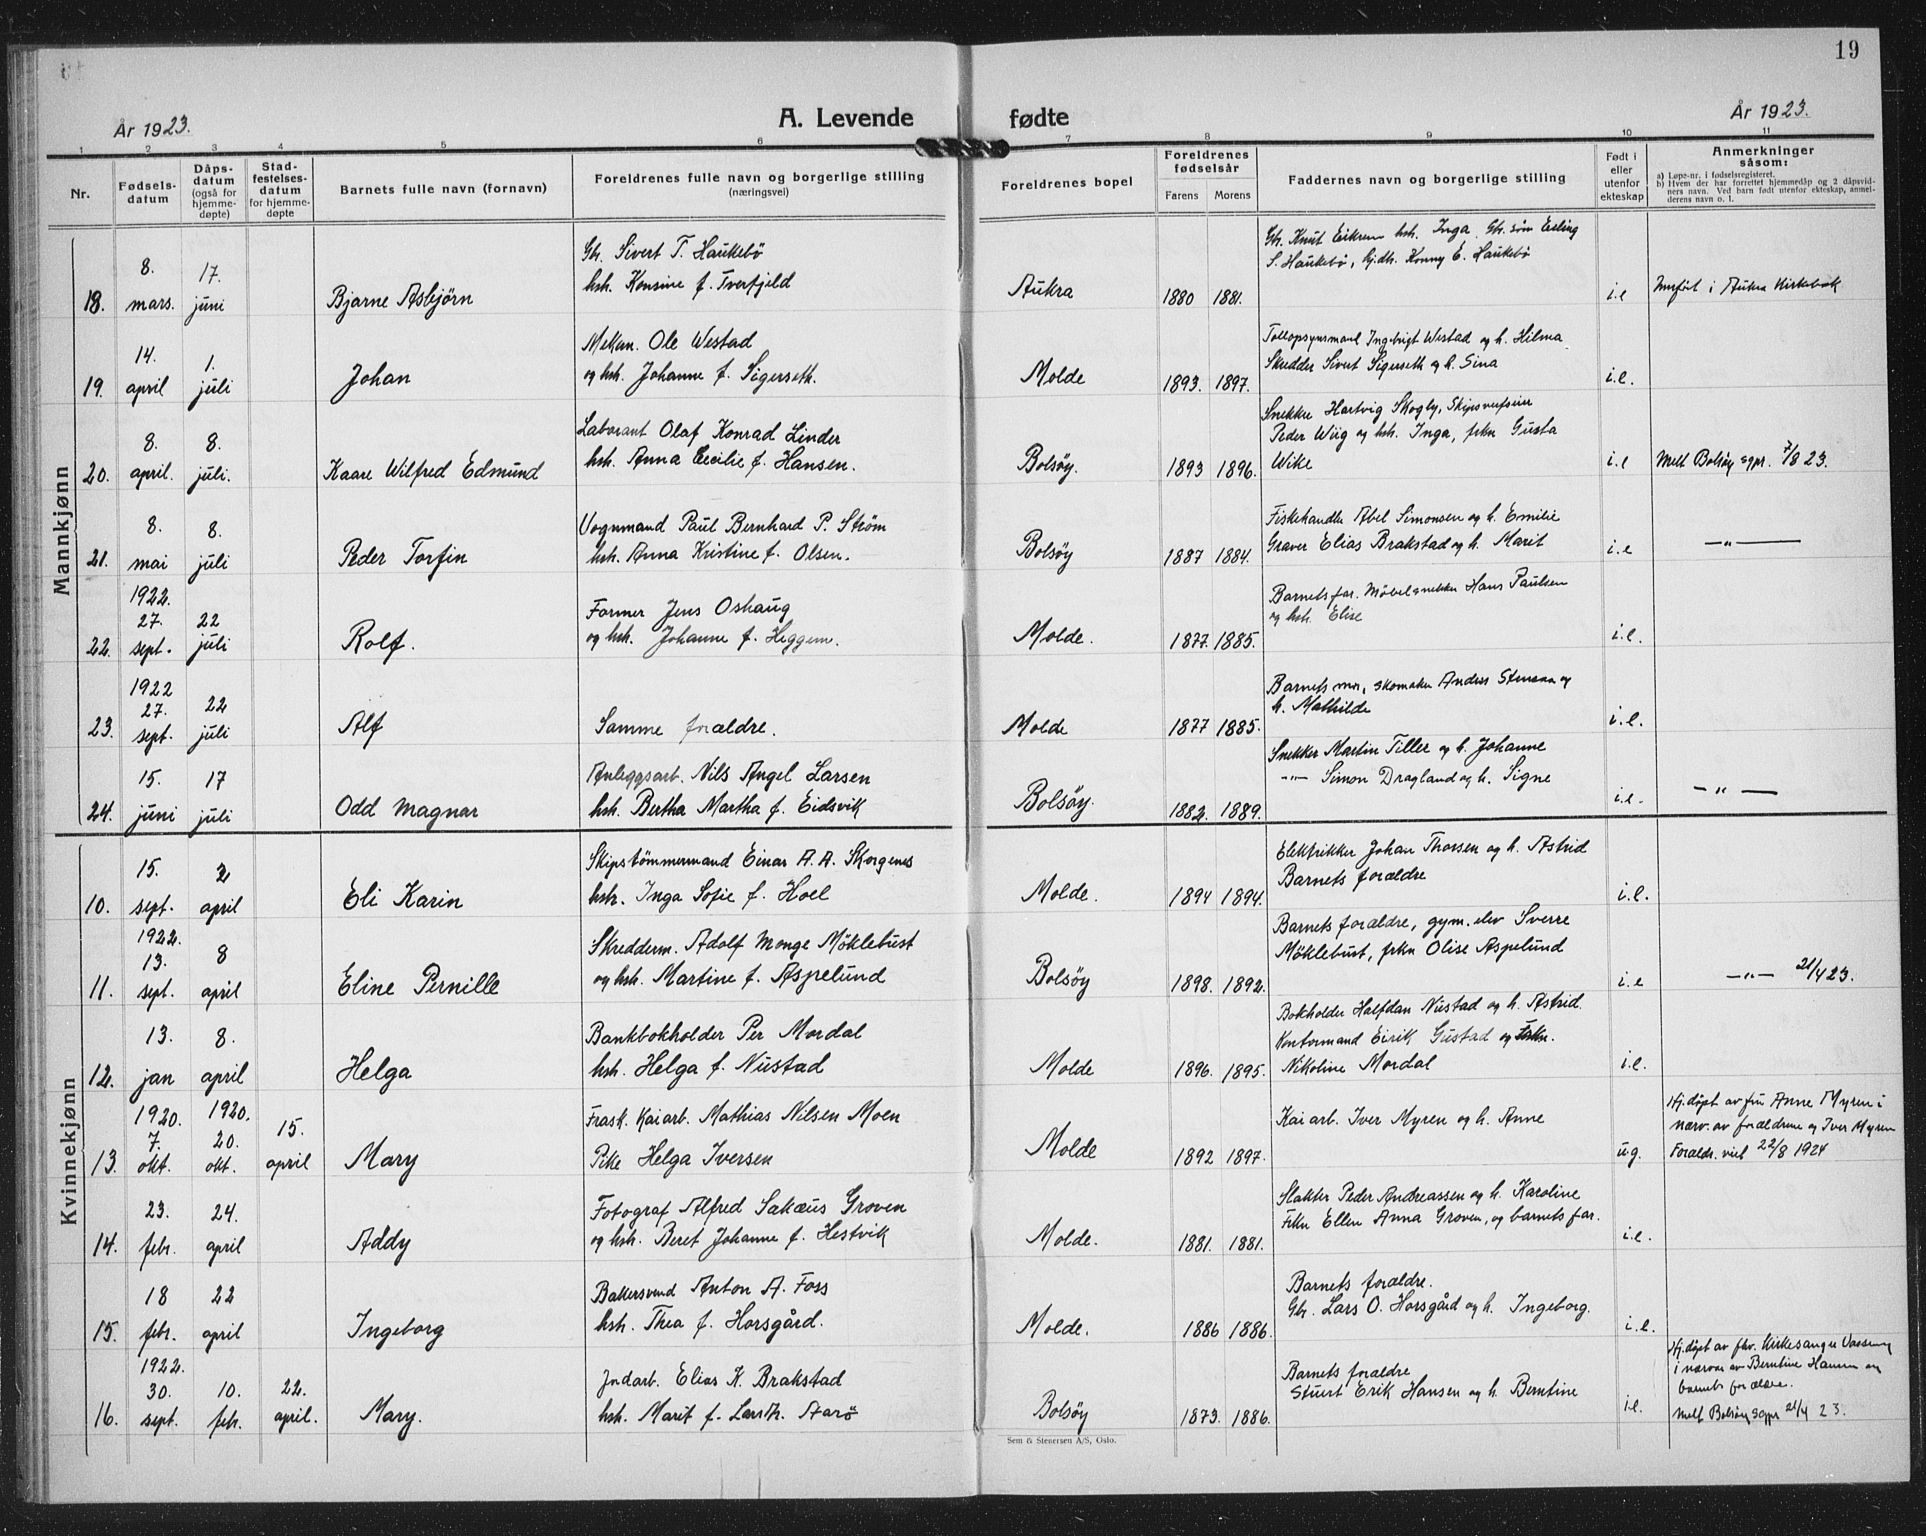 19
År 1923.
A. Levende fødte
År 1923.
1 2 3 4 5 6 7 8 9 10 11
Nr.
Fødsels-
datum
Dåps-
datum
(også for
hjemme-
døpte)
Stad-
festelses-
datum
for hjemme-
døpte
Barnets fulle navn (fornavn)
Foreldrenes fulle navn og borgerlige stilling
(næringsvei)
Foreldrenes bopel
Foreldrenes
fødselsår
Farens Morens
Faddernes navn og borgerlige stilling
Født i
eller
utenfor
ekteskap
Anmerkninger
såsom:
a) Løpe-nr. i fødselsregisteret.
b) Hvem der har forrettet hjemmedåp og 2 dåpsvid-
ners navn. Ved barn født utenfor ekteskap, anmel-
derens navn o. l.
Mannkjønn
18. 8. mars. 17. juni Bjarne Asbjørn
Gbr. Sivert T. Haukebø
hsh. Konsine f. Tverfjeld
Aukra 1880 1881.
Gbr. Knut Eikrem hsh. Inga. Gbr. søn Erling
S. Haukebø, gjdtr. Konny E. Haukebø
i.e Innført i Aukra Kirkebok
19. 14. april 1. juli Johan
Mekan. Ole Westad
og hsh. Johanne f. Sigerseth.
Molde 1893. 1897.
Tollopsynsmand Ingebrigt Westad og h. Hilma
Skredder Sivert Sigerseth og h. Sina
i.e.
20. 8. april. 8. juli. Kaare Wilfred Edmund
Laborant Olaf Konrad Linder
hsh. Anna Cecilie f. Hansen.
Bolsøy. 1893 1896.
Snekker Hartvig Skogly, Skipsverfseier
Peder Wiig og hsh. Inga, frkn Gusta
Wike
i.e Melt Bolsøy sgpr. 7/8 23.
21. 8. mai 8. juli Peder Torfin
Vognmand Paul Bernhard P. Strøm
hsh. Anna Kristine f. Olsen.
Bolsøy 1887 1884.
Fiskehandler Abel Simonsen og h. Emilie
Graver Elias Brakstad og h. Marit
i.e — " —
22. 1922. 27. sept. 22 juli Rolf.
Former Jens Oshaug
og hsh. Johanne f. Heggem.
Molde. 1877. 1885.
Barnets far. Møbelsnekker Hans Paulsen
og hsh. Elise
i.e.
23. 1922 27. sept. 22 juli Alf
Samme forældre.
Molde 1877 1885.
Barnets mor, skomaker Anders Stensaa og
h. Mathilde
i.e.
24. 15. juni 17 juli Odd Magnar
Anleggsarb. Nils Angel Larsen
hsh. Bertha Martha f. Eidsvik
Bolsøy. 1882. 1889.
Snekker Martin Tiller og h. Johanne
— " — Simon Dragland og h. Signe
i.e. — " —
Kvinnekjønn
10. 15. sept. 2 april Eli Karin
Skipstømmermand Einar A. A. Skorgenes
hsh. Inga Sofie f. Hoel
Molde. 1894 1894.
Elektrikker Johan Thorsen og h. Astrid
Barnets forældre
i.e.
11. 1922. 13. sept. 8 april Eline Pernille
Skredderm. Adolf Monge Møklebust
og hsh. Martine f. Aspelund
Bolsøy 1898. 1892.
Barnets forældre, gym. elev Sverre
Møklebust, frkn Olise Aspelund
i.e — " — 21/4 23.
12. 13. jan 8. april Helga
Bankbokholder Per Mordal
hsh. Helga f. Nustad
Molde 1896. 1895.
Bokholder Halfdan Nustad og h. Astrid.
Kontormand Eirik Gustad og Frkn.
Nikoline Mordal
i.e.
13. 1920. 7. okt. 1920. 20. okt. 15. april Mary
Frask. Kaiarb. Mathias Nilsen Moen
Pike Helga Iversen
Molde 1892 1897.
Kaiarb. Iver Myren og h. Anne
u.g.
Hj. døpt av fru Anne Myren i
nærv. av forældrene og Iver Myren
Forældr. viet 22/8 1924
14. 23. febr. 24. april Addy
Fotograf Alfred Sakæus Groven
og hsh. Beret Johanne f. Hestvik
Molde. 1881. 1881.
Slakter Peder Andreassen og h. Karoline
Frkn Ellen Anna Groven, og barnets far.
i.e.
15. 18 febr. 22 april Ingeborg
Bakersvend Anton A. Foss
hsh. Thea f. Horsgård.
Molde. 1886 1886.
Barnets forældre.
Gbr. Lars O. Horsgård og h. Ingeborg.
i.e.
16. 1922. 30. sept. 10. febr. 22. april. Mary.
Jordarb. Elias K. Brakstad
hsh. Marit f. Larsth. Aarø
Bolsøy 1873. 1886.
Barnets forældre
Stuert Erik Hansen og h. Berntine
i.e.
Hj. døpt av fhv. Kirkesanger
i nærvær av Berntine Hansen og
barnets forældre.
Melt Bolsøy sgpr 21/4 23.
Sem & Stenersen A/S, Oslo.